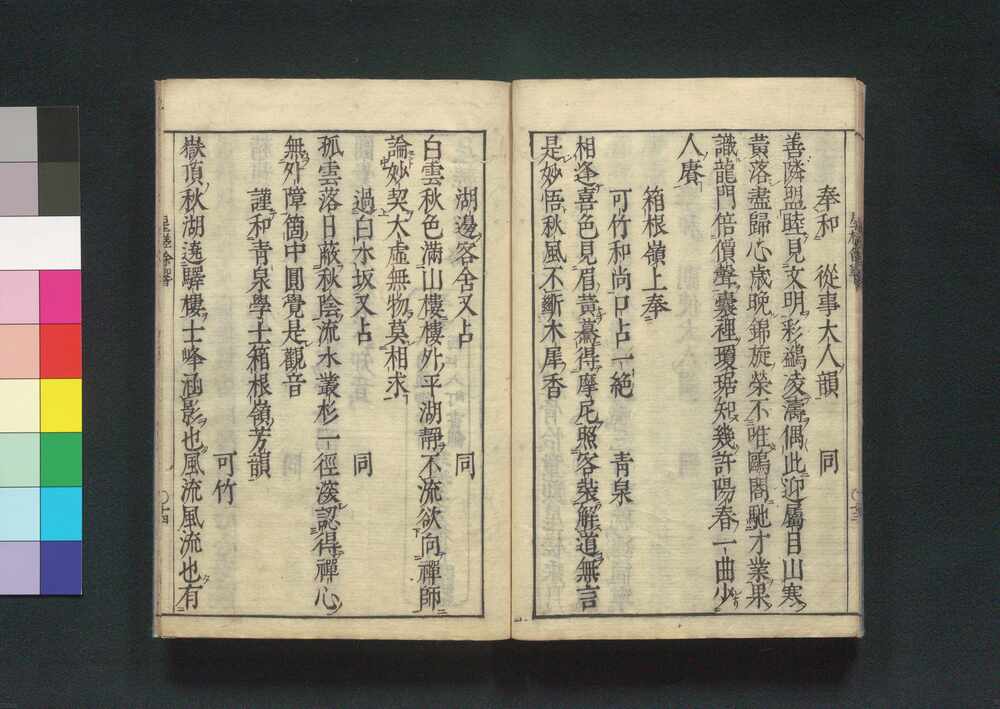 奉和　從事大人韻　同
善隣盟睦見文明彩鷁凌濤偶此迎屬目山寒
黃落盡歸心歳晚錦旋榮不唯鷗閣馳才業果
識龍門倍價聲囊裡瓊琚知幾許陽春一曲少
人賡
箱根嶺上奉
可竹和尚口占一絶　青泉
相逢喜色見眉黃驀得摩尼照客裝解道無言
是妙悟秋風不斷木犀香
湖邊客舍又占　同
白雲秋色滿山樓樓外平湖靜不流欲向禪師
論妙契太虛無物莫相求
過白水坂又占　同
孤雲落日蔽秋陰流水叢杉一徑深認得禪心
無外障箇中圓覺是觀音
謹和青泉學士箱根嶺芳韻
可竹
嶽頂秋湖遶驛樓士峰涵影也風流風流也有
〇十四